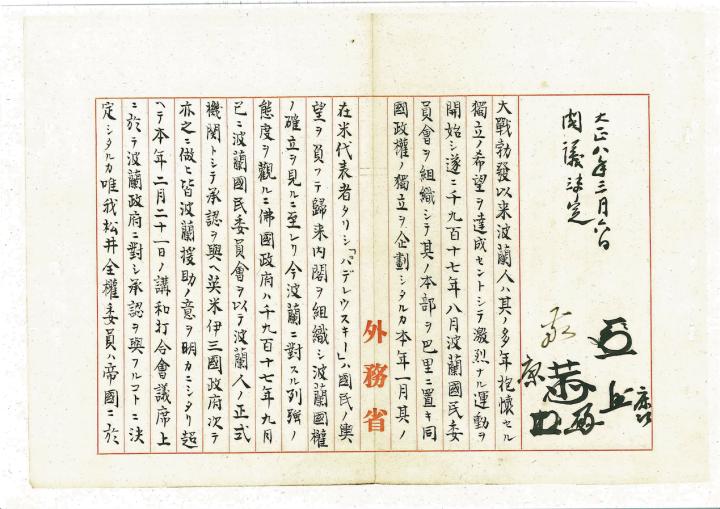 大正八年三月六日
閣議決定
大戰勃發以来波蘭人ハ其ノ多年抱懐セル
獨立ノ希望ヲ達成セントシテ激烈ナル運動ヲ
開始シ遂ニ千九百十七年八月波蘭國民委
員會ヲ組織シテ其ノ本部ヲ巴里ニ置キ同
國政權ノ獨立ヲ企劃シタルカ本年一月其ノ
外務省
在米代表者タリシ「パデレウスキー」ハ國民ノ輿
望ヲ負フテ歸来内閣ヲ組織シ波蘭國權
ノ確立ヲ見ルニ至レリ今波蘭ニ對スル列強ノ
態度ヲ觀ルニ佛國政府ハ千九百十七年九月
已ニ波蘭國民委員會ヲ以テ波蘭人ノ正式
機関トシテ承認ヲ與ヘ英米伊三國政府次テ
亦之ニ倣ヒ皆波蘭援助ノ意ヲ明カニシタリ超
ヘテ本年二月二十一日ノ講和打合會議席上
ニ於テ波蘭政府ニ對シ承認ヲ與フルコトニ決
定シタルカ唯我松井全權委員ハ帝國ニ於